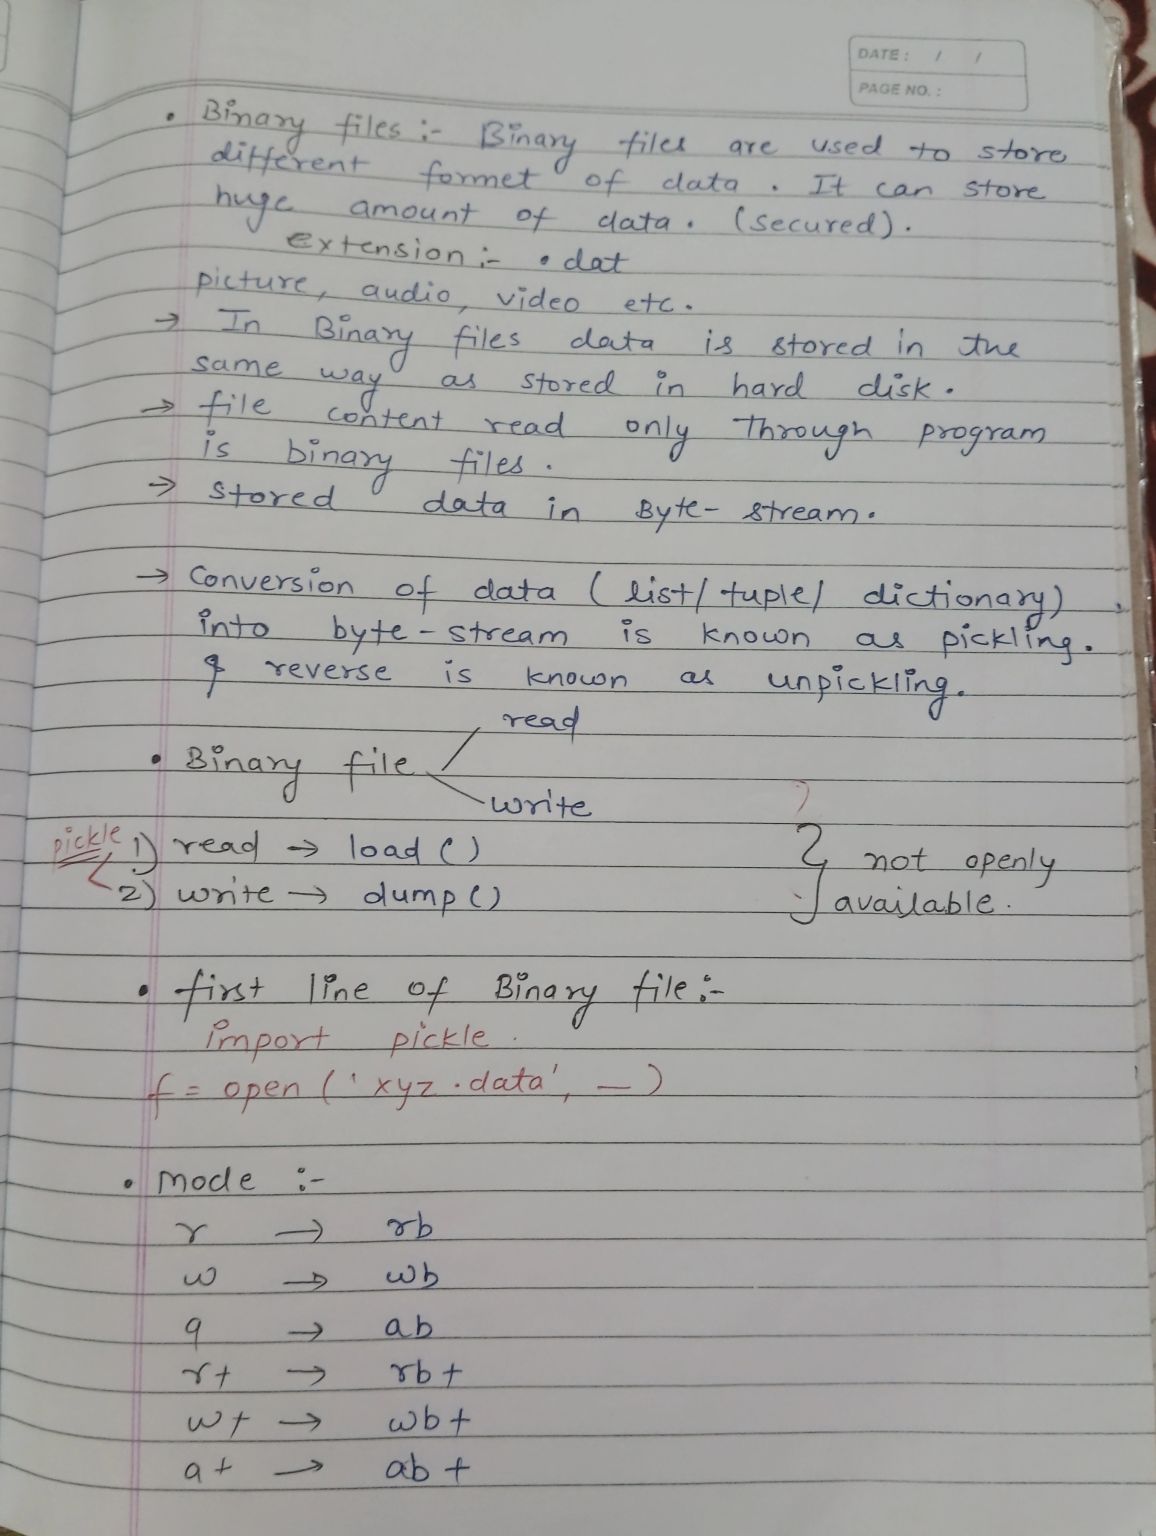 DATE: / /
PAGE NO.:
• Binary files :- Binary files are used to store
different formet of data . It can store
huge amount of data. (secured).
extension :- .dat
picture, audio, video etc.
→ In Binary files data is stored in the
same way as stored in hard disk.
→ file content read only through program
is binary files.
→ stored data in Byte-stream.
→ Conversion of data (list/tuple/ dictionary)
into byte-stream is known as pickling.
& reverse is known as unpickling.
read
• Binary file
write
pickle 1) read → load ()
2) write → dump ()
} not openly
available.
• first line of Binary file :-
import pickle.
f = open ('xyz.data', _)
• mode :-
r → rb
w → wb
a → ab
r+ → rb+
w+ → wb+
a+ → ab+